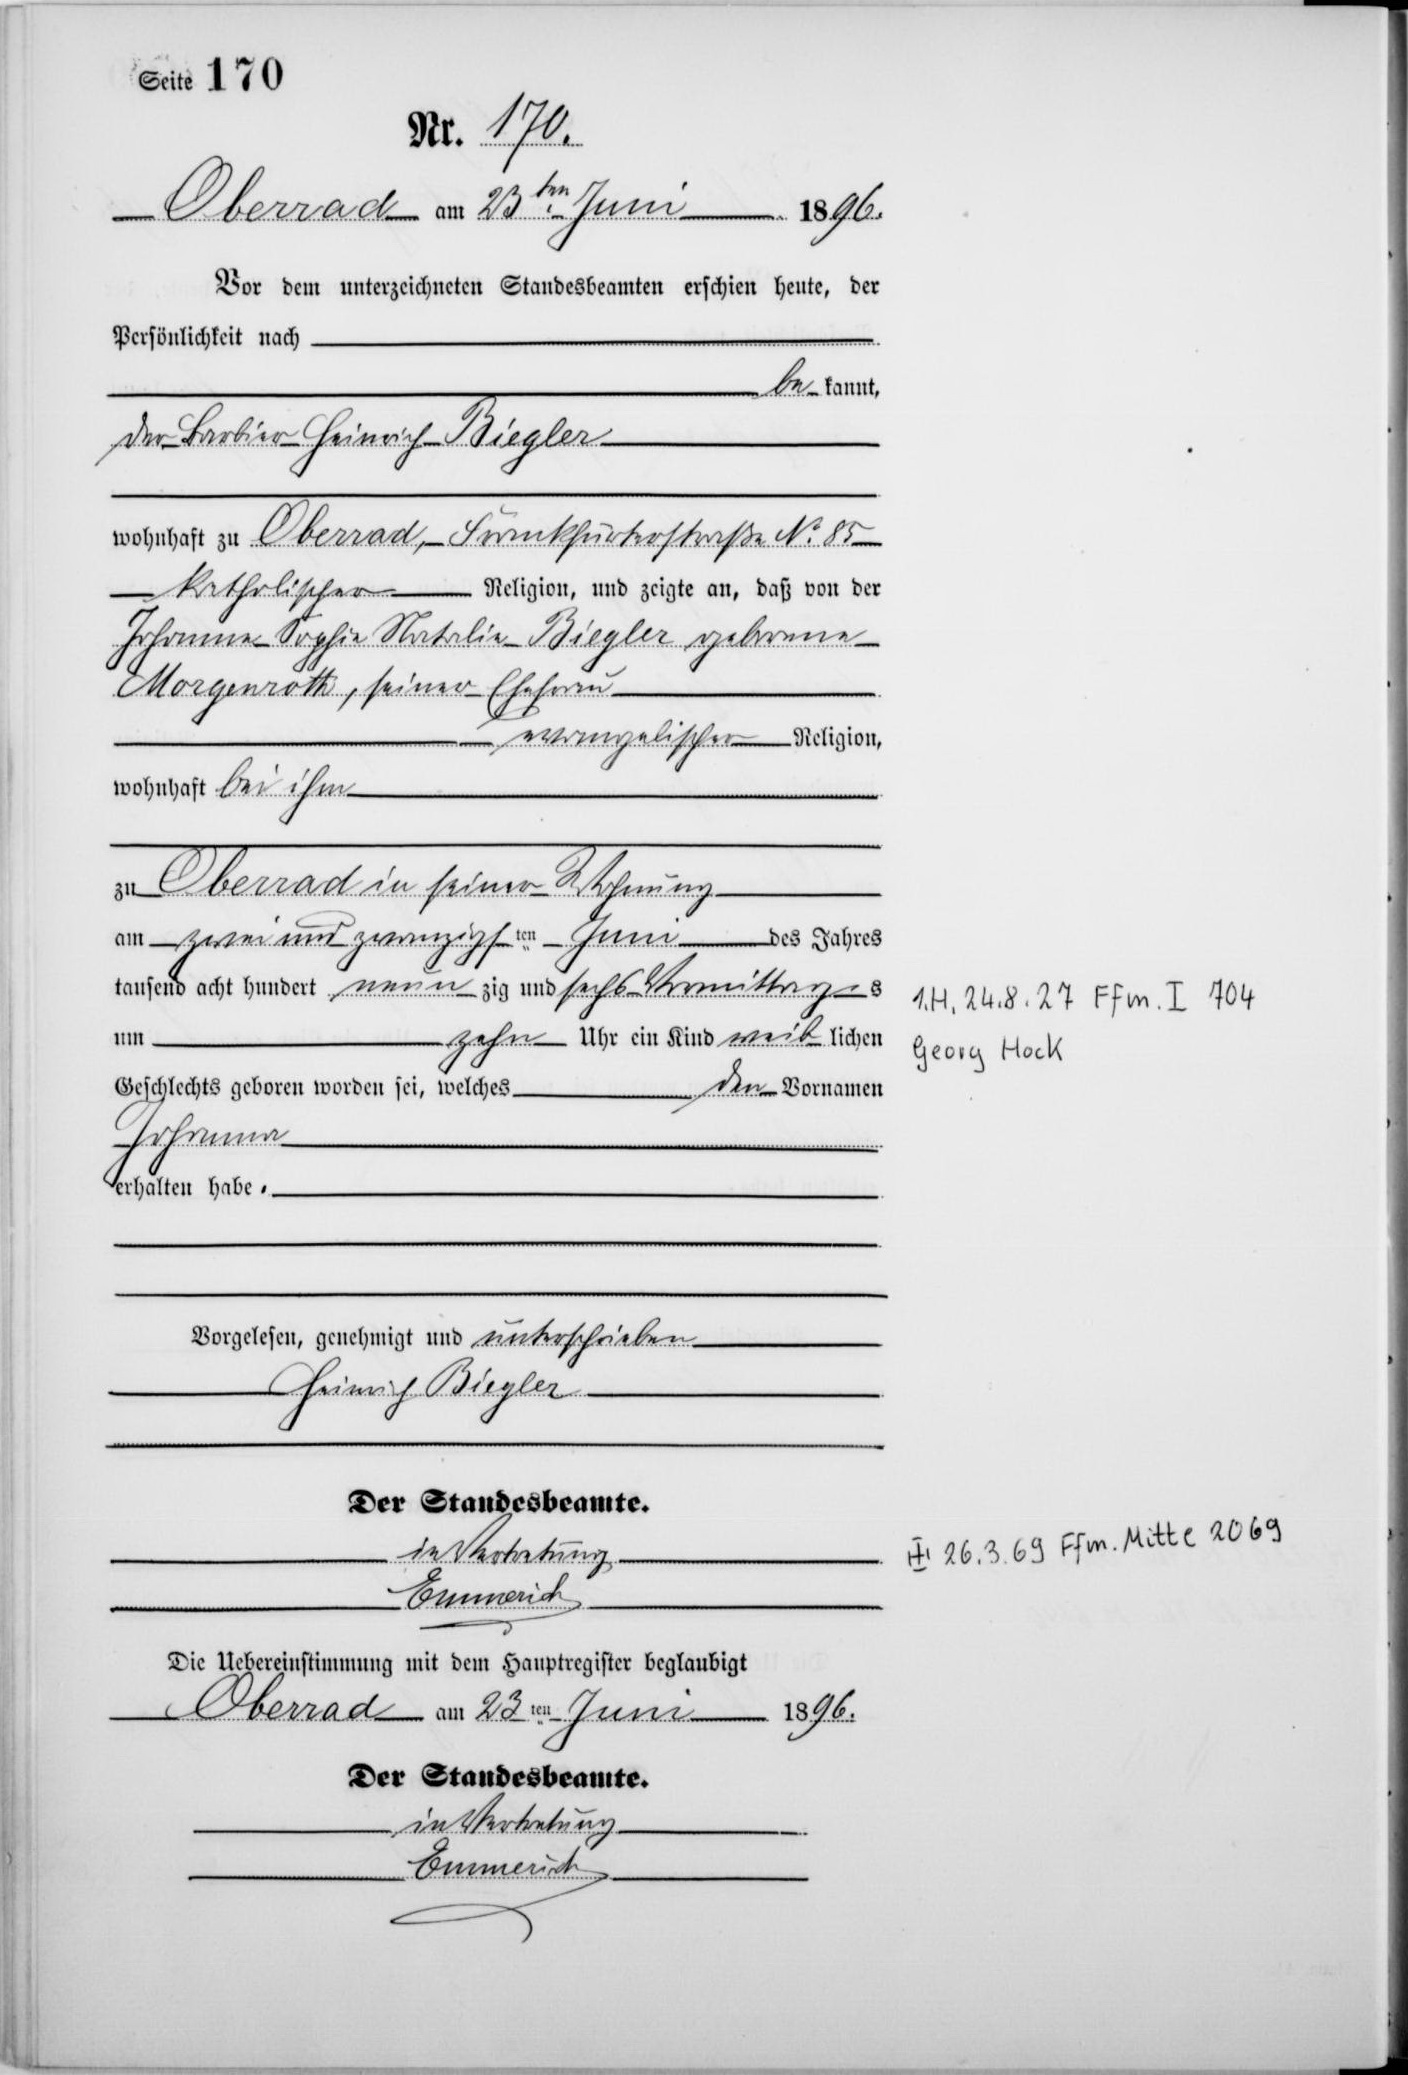 Seite 170
Nr. 170.
Oberrad am 23ten Juni 1896.
Vor dem unterzeichneten Standesbeamten erschien heute, der
Persönlichkeit nach
be kannt,
der Barbier Heinrich Biegler
wohnhaft zu Oberrad, Frankfurterstraße No. 85
katholischer Religion, und zeigte an, daß von der
Johanna Sophie Natalie Biegler geborene
Morgenroth, seiner Ehefrau
evangelischer Religion,
wohnhaft bei ihm
zu Oberrad in seiner Wohnung
am zwei und zwanzigsten Juni des Jahres
tausend acht hundert neun zig und sechs Vormittags
um zehn Uhr ein Kind weib lichen
Geschlechts geboren worden sei, welches den Vornamen
Johanna
erhalten habe.
Vorgelesen, genehmigt und unterschrieben
Heinrich Biegler
Der Standesbeamte.
in Vertretung
Emmerich
Die Uebereinstimmung mit dem Hauptregister beglaubigt
Oberrad am 23ten Juni 1896.
Der Standesbeamte.
in Vertretung
Emmerich
1.H. 24.8.27 Ffm. I 704
Georg Hock
26.3.69 Ffm. Mitte 2069